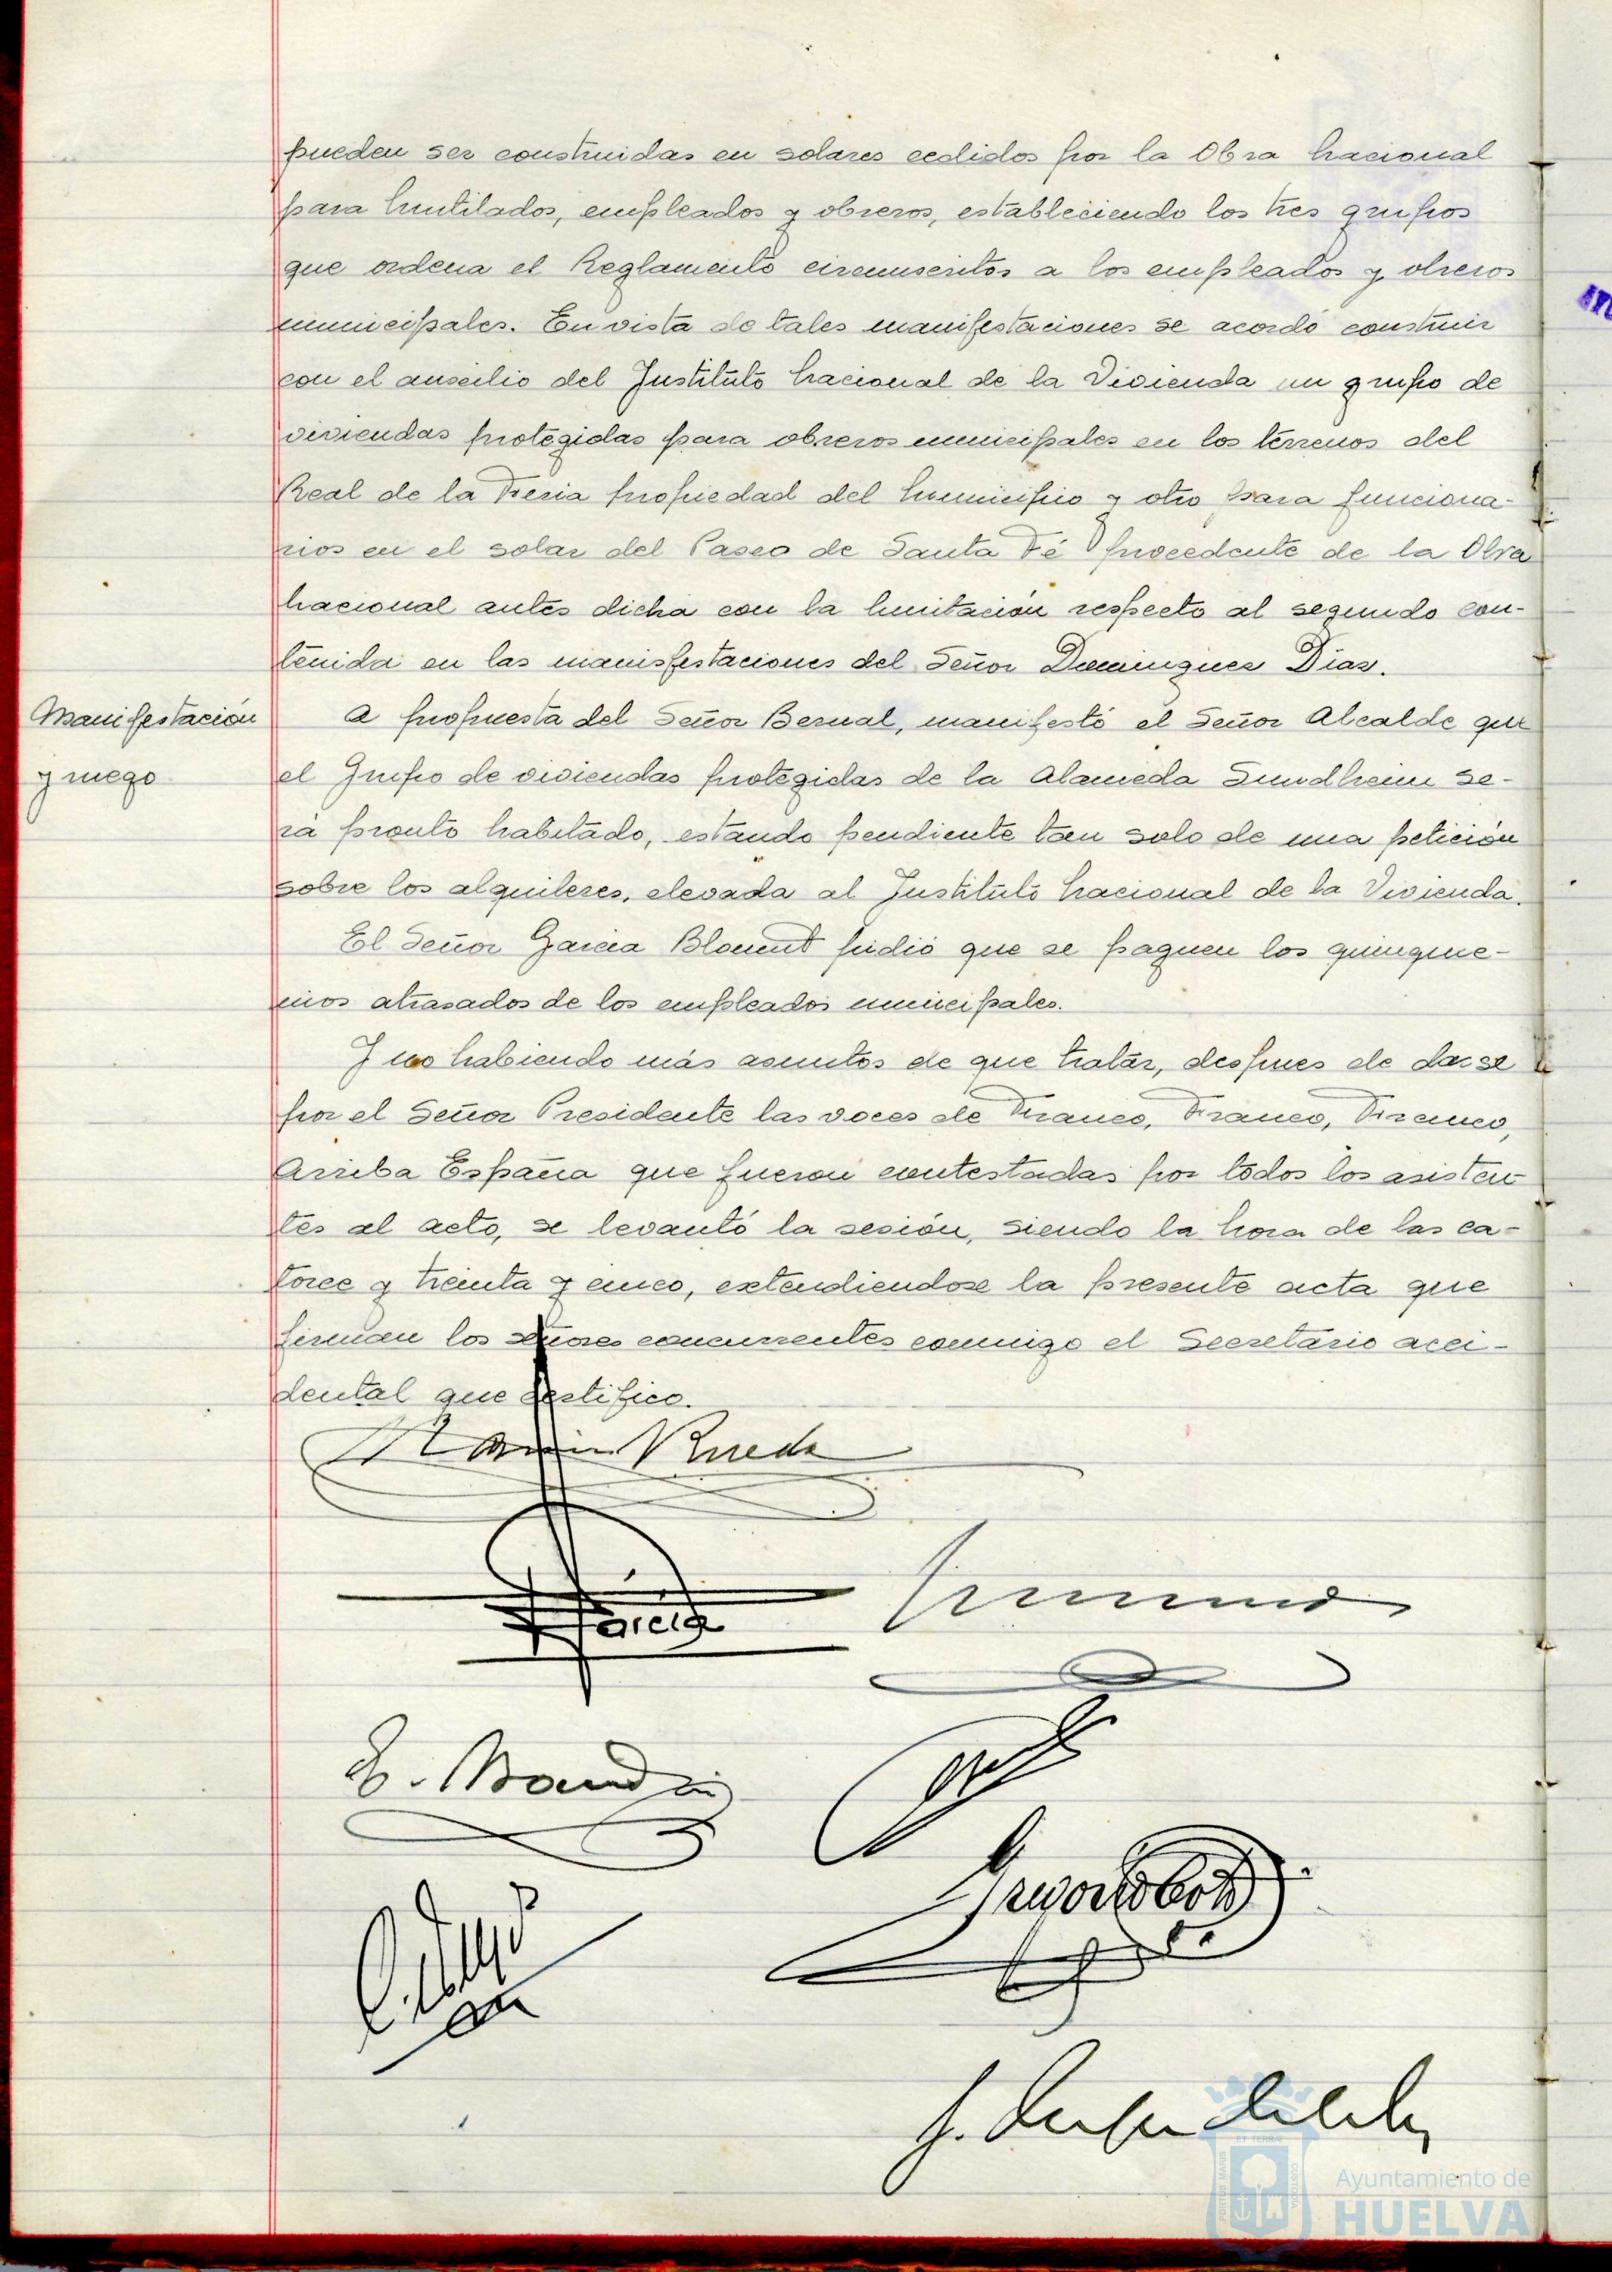 pueden ser construidas en solares cedidos por la Obra Nacional
para Mutilados, empleados y obreros, estableciendo los tres grupos
que ordena el Reglamento circunscritos a los empleados y obreros
municipales. En vista de tales manifestaciones se acordó construir
con el auxilio del Instituto Nacional de la Vivienda un grupo de
viviendas protegidas para obreros municipales en los terrenos del
Real de la Feria propiedad del Municipio y otro para funciona-
rios en el solar del Paseo de Santa Fé procedente de la Obra
Nacional antes dicha con la limitación respecto al segundo con-
tenida en las manisfestaciones del Señor Dominguez Díaz.
Manifestación
y ruego
A propuesta del Señor Bernal, manifestó el Señor Alcalde que
el Grupo de viviendas protegidas de la Alameda Sundheim se-
rá pronto habitado, estando pendiente tan solo de una petición
sobre los alquileres, elevada al Instituto Nacional de la Vivienda.
El Señor Garcia pidió que se paguen los quinque-
nios atrasados de los empleados municipales.
Y no habiendo más asuntos de que tratar, despues de darse
por el Señor Presidente las voces de Franco, Franco, Franco,
Arriba España que fueron contestadas por todos los asisten-
tes al acto, se levantó la sesión, siendo la hora de las ca-
torce y treinta y cinco, extendiendose la presente acta que
firman los señores concurrentes conmigo el Secretario acci-
dental que certifico.
Rueda
García
Ayuntamiento de
HUELVA